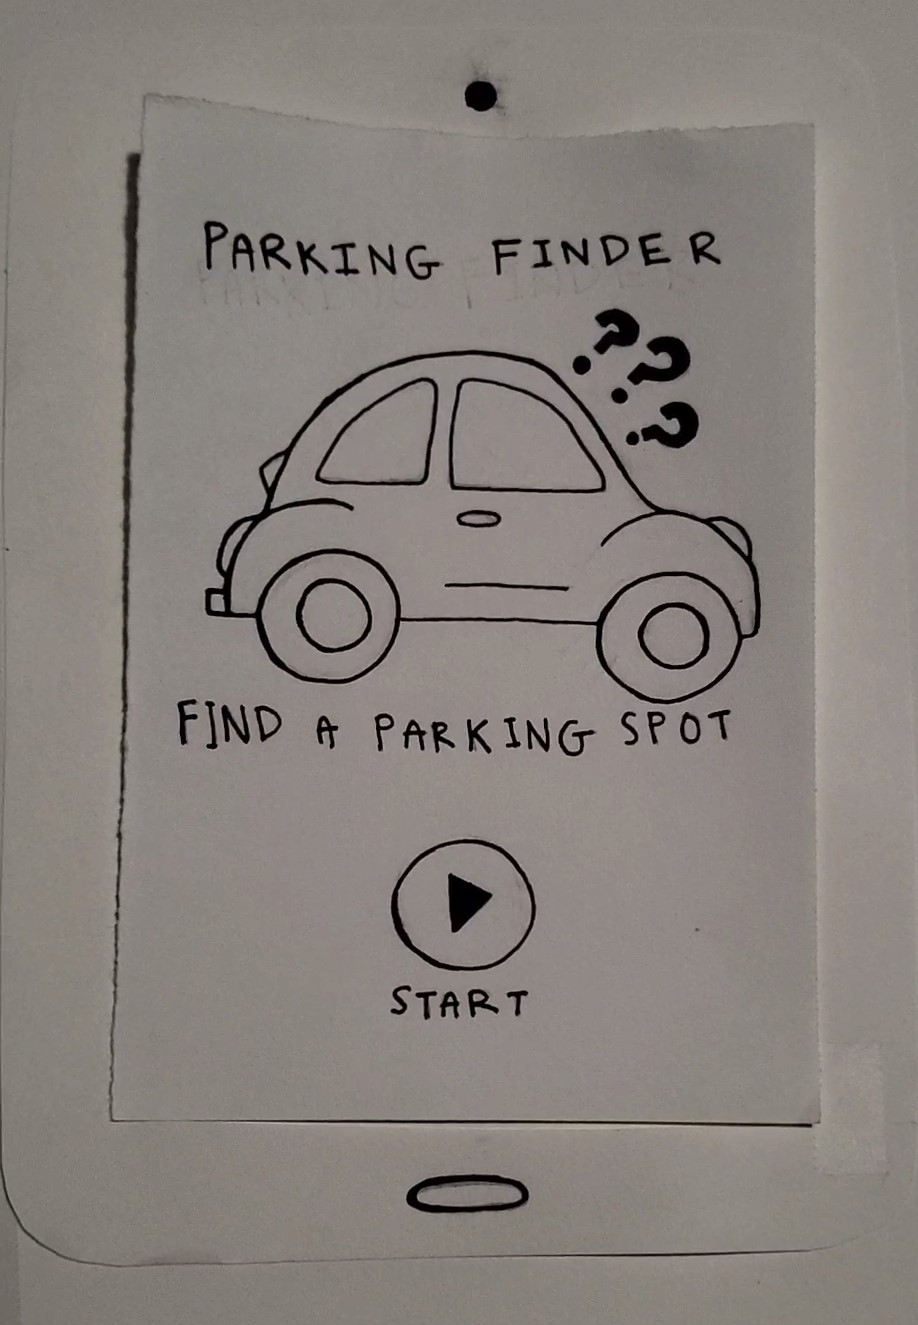 PARKING FINDER
???
FIND A PARKING SPOT
START